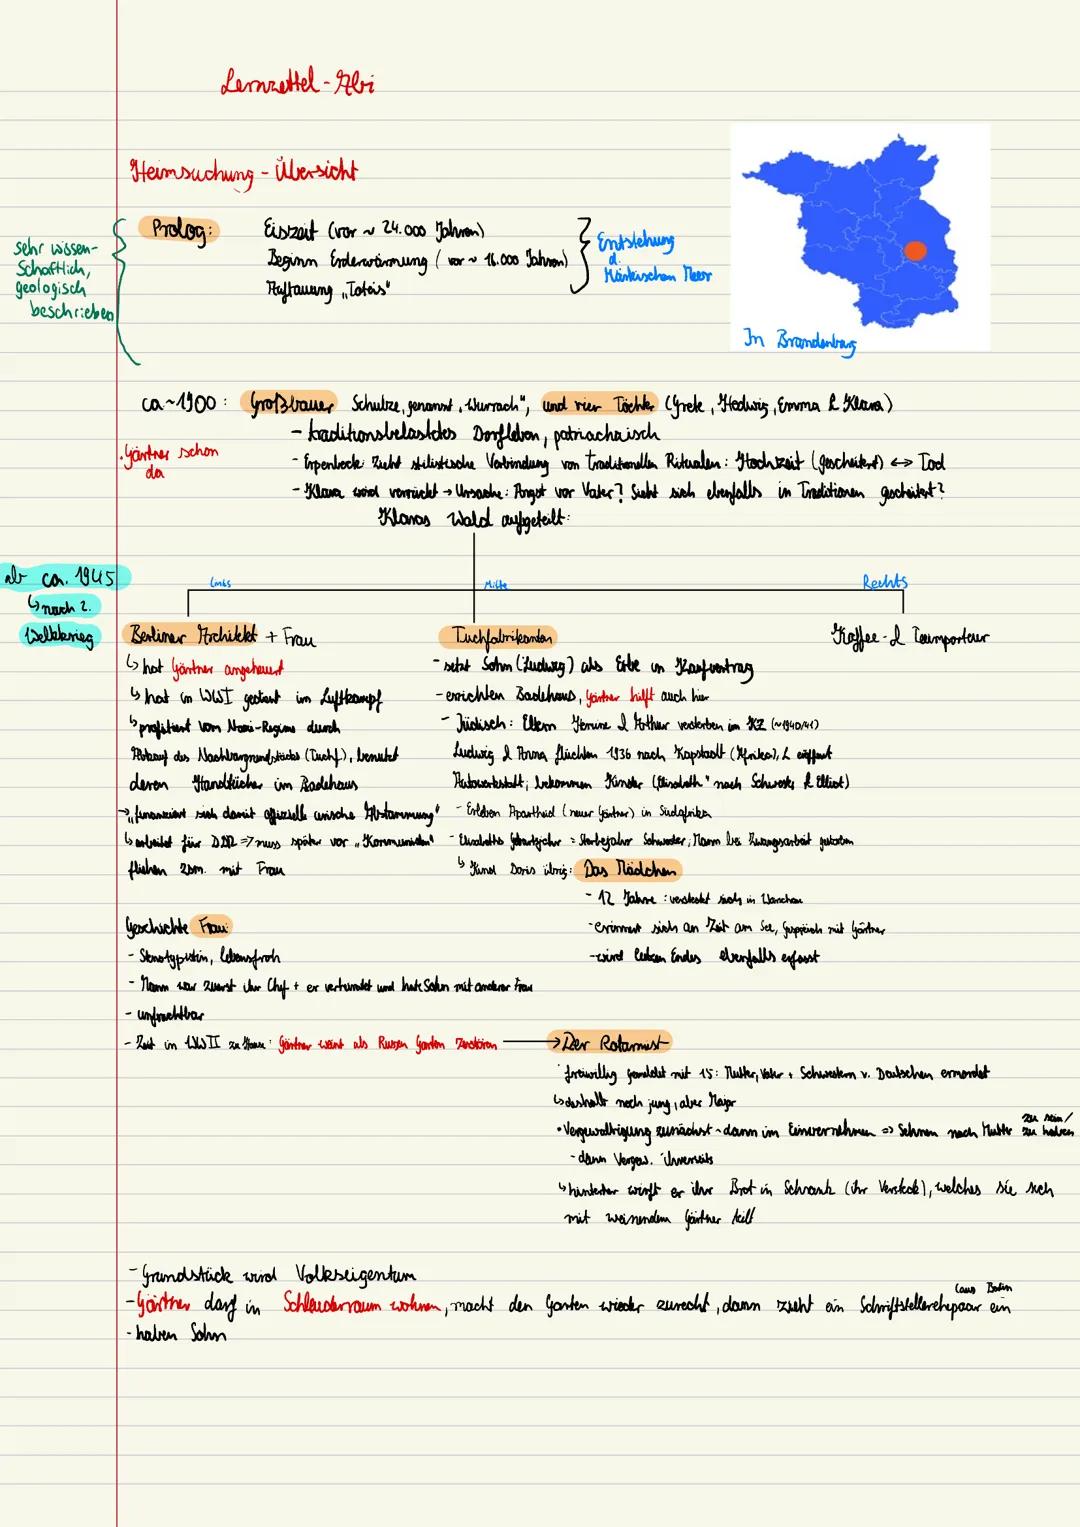 Lernzettel - Abi
Heimsuchung - Übersicht
Prolog:
Eiszeit (vor ~ 24.000 Jahren)
Beginn Erderwärmung (vor ~ 16.000 Jahren)
Auftauung „Toteis"
Entstehung
d.
Märkischen Meer
sehr wissen-
schaftlich,
geologisch
beschrieben
In Brandenburg
ca ~1900: Großbauer Schulze, genannt „Wurrach", und vier Töchter (Grete, Hedwig, Emma & Klara)
- traditionsbelastetes Dorfleben, patriachaisch
. Gärtner schon
da
- Erpenbeck zieht stilistische Verbindung von traditionellen Ritualen: Hochzeit (gescheitert) <-> Tod
- Klara wird verrückt → Ursache: Angst vor Vater? Sieht sich ebenfalls in Traditionen gescheitert?
Klaras Wald aufgeteilt:
ab ca. 1945
↳ nach 2.
Weltkrieg
Links
Mitte
Rechts
Berliner Architekt + Frau
↳ hat Gärtner angeheuert
↳ hat in WWI gedient im Luftkampf
↳ profitiert vom Nazi-Regime durch
Abkauf des Nachbargrundstücks (Tuchf.), benutzt
deren Handtücher im Badehaus
→ „finanziert sich damit offizielle arische Abstammung"
↳ arbeitet für DDR => muss später vor „Kommunisten"
fliehen zsm. mit Frau
Tuchfabrikanten
- setzt Sohn (Ludwig) als Erbe in Kaufvertrag
- errichten Badehaus, Gärtner hilft auch hier
- Jüdisch: Eltern Hermine & Arthur verstorben im KZ (~1940/41)
Ludwig & Anna flüchten 1936 nach Kapstadt (Afrika), L eröffnet
Autowerkstatt; bekommen Kinder (Elisabeth" nach Schwester & Elliot)
- Erleben Apartheid (neuer Gärtner) in Südafrika
- Elisabeths Geburtsjahr = Sterbejahr Schwester; Mann bei Zwangsarbeit gestorben
↳ Kind Doris übrig: Das Mädchen
- 12 Jahre: versteckt sich in Warschau
- erinnert sich an Zeit am See, Gespräch mit Gärtner
- wird letzten Endes ebenfalls erfasst
Kaffee- & Teeimporteur
Geschichte Frau:
- Stenotypistin, lebensfroh
- Mann war zuerst ihr Chef + er verheiratet und hat Sohn mit anderer Frau
- unfruchtbar
- Zeit in WWII zu Hause: Gärtner weint als Russen Garten zerstören → Der Rotarmist
· freiwillig gemeldet mit 15: Mutter, Vater + Schwestern v. Deutschen ermordet
↳ deshalb noch jung, aber Major
• Vergewaltigung zunächst - dann im Einvernehmen => Sehnen nach Mutter zu sein/ zu haben
- dann Vergew. ihrerseits
↳ hinterher wirft er ihr Brot in Schrank (ihr Versteck), welches sie sich
mit weinendem Gärtner teilt
- Grundstück wird Volkseigentum
- Gärtner darf in Schleuderraum wohnen, macht den Garten wieder zurecht, dann zieht ein Schriftstellerehepaar ein (aus Berlin
- haben Sohn